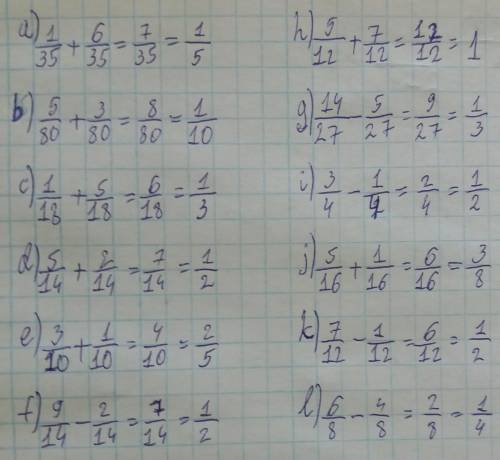 a) 1/35 + 6/35 = 7/35 = 1/5
b) 5/80 + 3/80 = 8/80 = 1/10
c) 1/18 + 5/18 = 6/18 = 1/3
d) 5/14 + 2/14 = 7/14 = 1/2
e) 3/10 + 1/10 = 4/10 = 2/5
f) 9/14 - 2/14 = 7/14 = 1/2
h) 5/12 + 7/12 = 12/12 = 1
g) 14/27 - 5/27 = 9/27 = 1/3
i) 3/4 - 1/4 = 2/4 = 1/2
j) 5/16 + 1/16 = 6/16 = 3/8
k) 7/12 - 1/12 = 6/12 = 1/2
l) 6/8 - 4/8 = 2/8 = 1/4